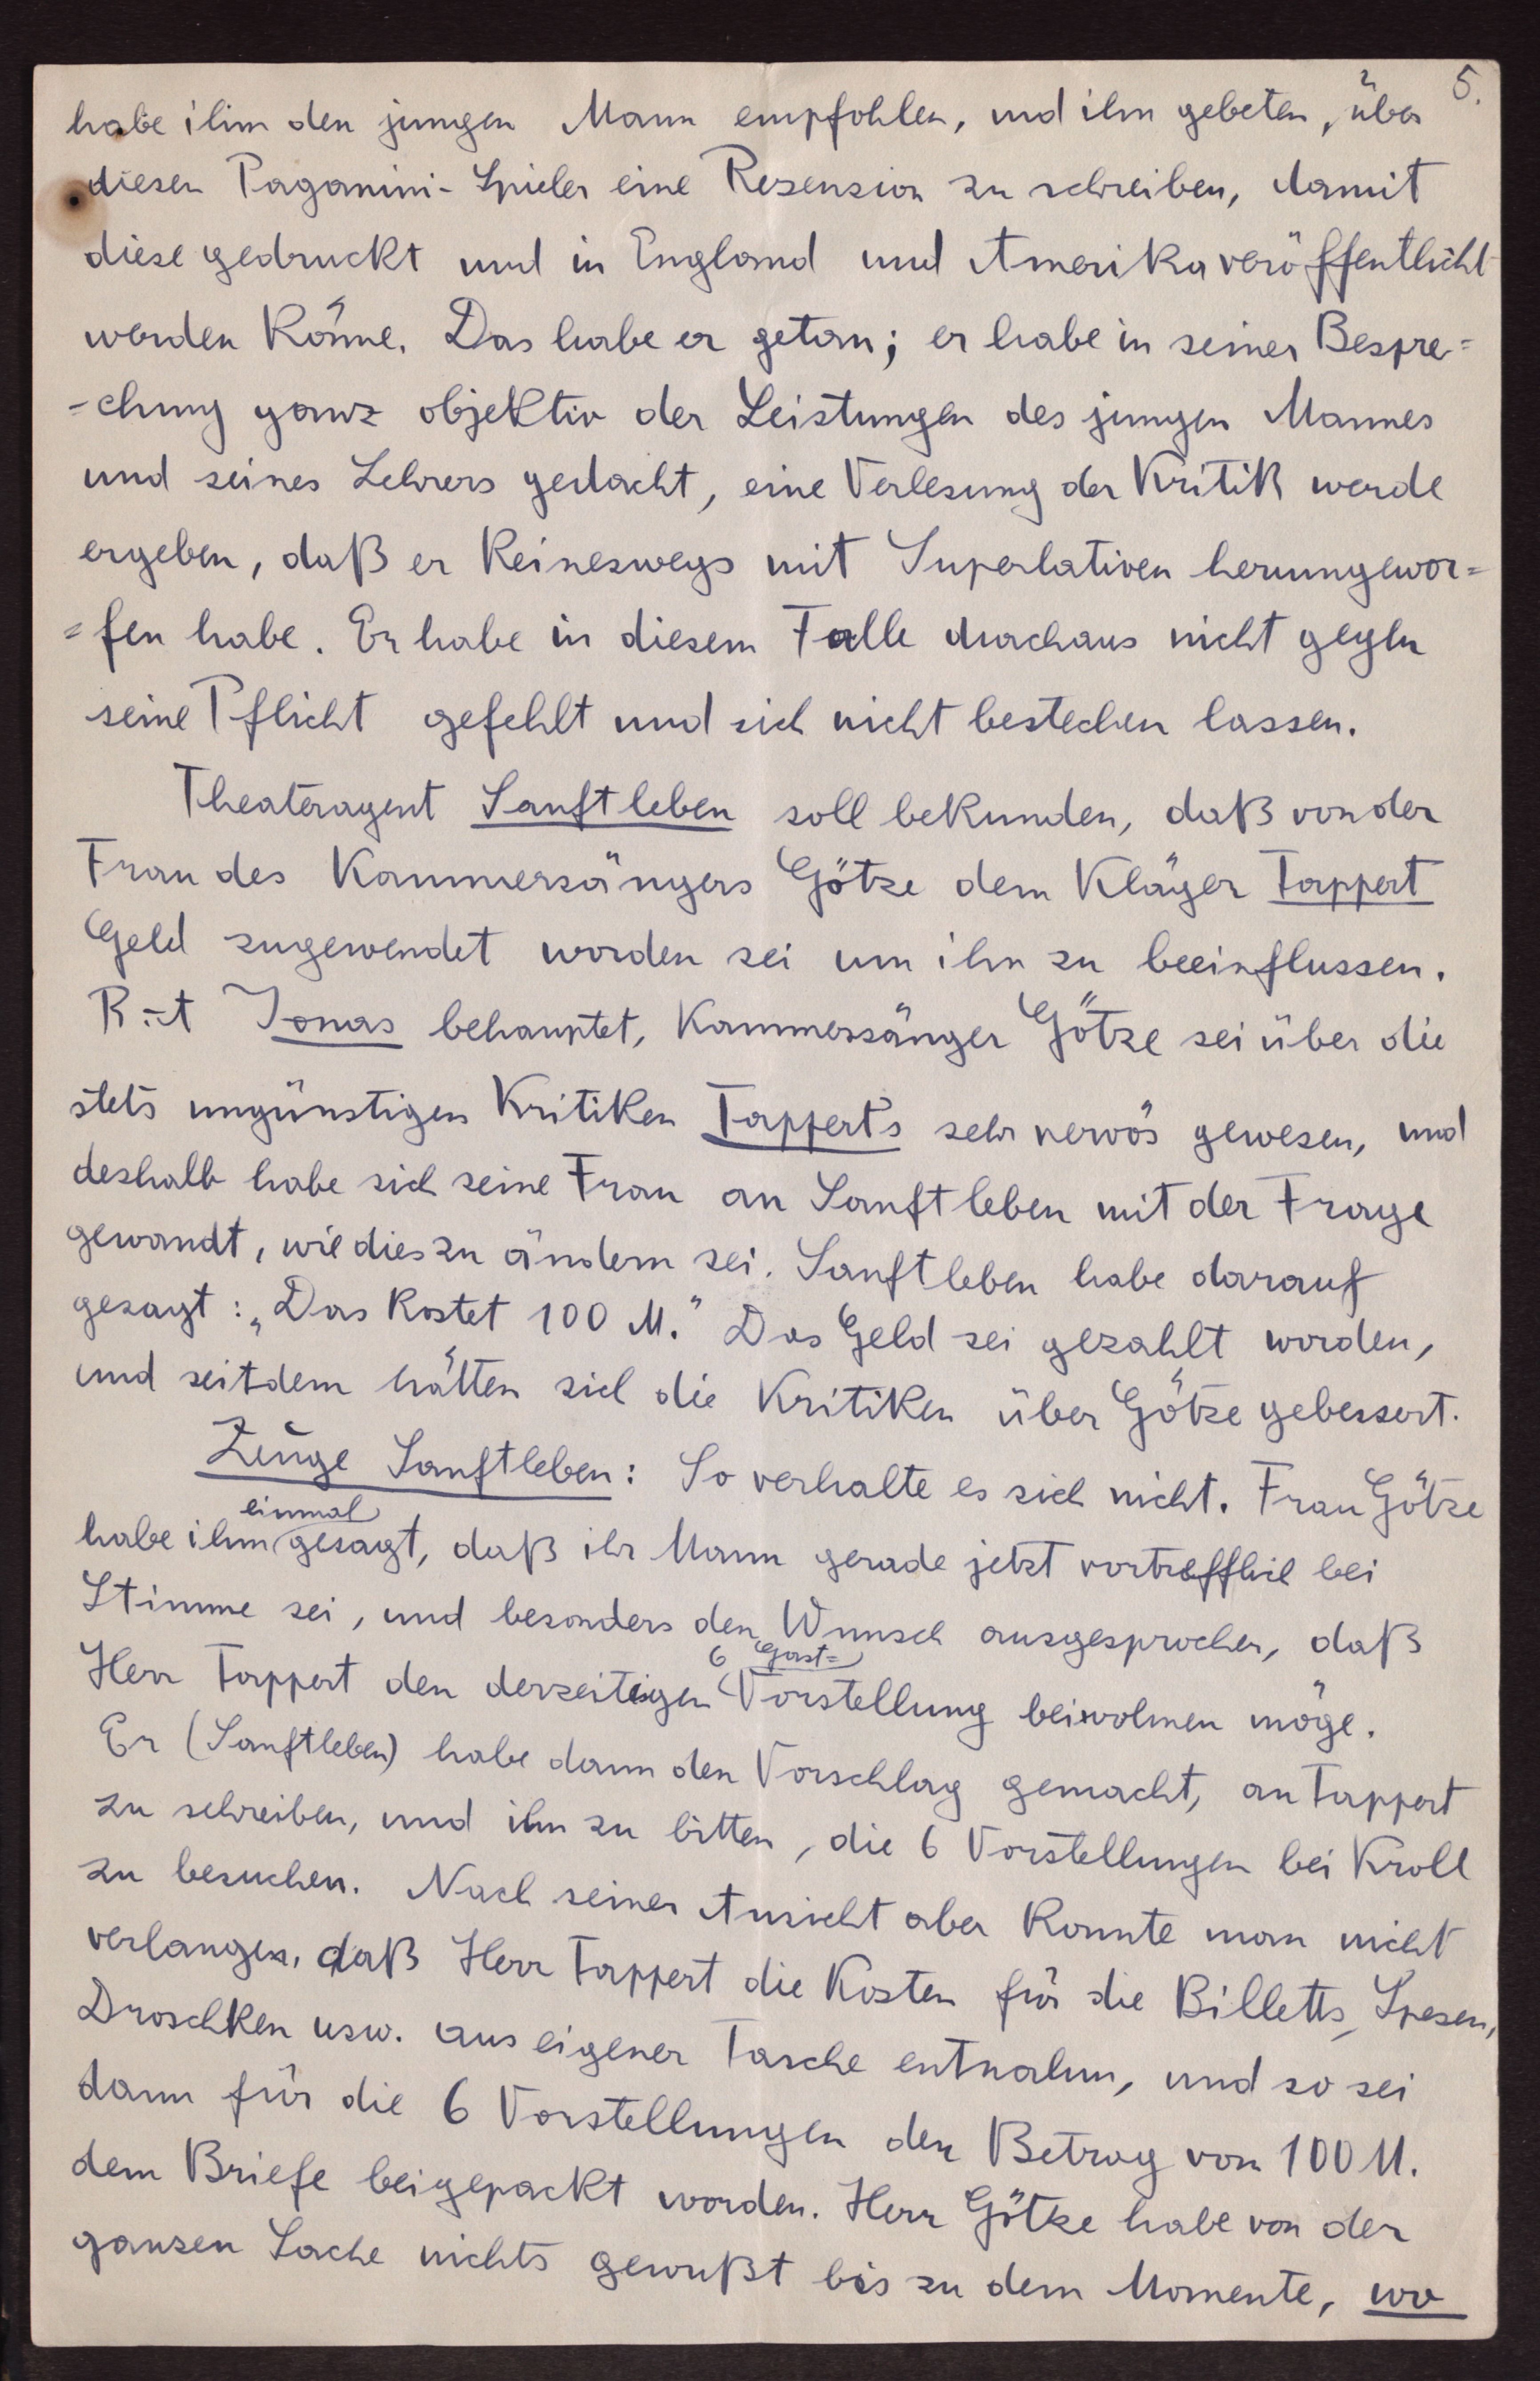 5.
habe ihm den jungen Mann empfohlen, und ihn gebeten, über
diesen Paganini-Spieler eine Rezension zu schreiben, damit
diese gedruckt und in England und Amerika veröffentlicht
werden könne. Das habe er getan; er habe in seiner Bespre=
=chung ganz objektiv der Leistungen des jungen Mannes
und seines Lehrers gedacht, eine Verlesung der Kritik werde
ergeben, daß er keineswegs mit Superlativen herumgewor=
=fen habe. Er habe in diesem Falle durchaus nicht gegen
seine Pflicht gefehlt und sich nicht bestechen lassen.
Theateragent Sanftleben soll bekunden, daß von der
Frau des Kammersängers Götze dem Kläger Tappert
Geld zugewendet worden sei um ihn zu beeinflussen.
R.-t Jonas behauptet, Kammersänger Götze sei über die
stets ungünstigen Kritiken Tappert's sehr nervös gewesen, und
deshalb habe sich seine Frau an Sanftleben mit der Frage
gewandt, wie dies zu ändern sei. Sanftleben habe darauf
gesagt: „Das kostet 100 M." Das Geld sei gezahlt worden,
und seitdem hätten sich die Kritiken über Götze gebessert.
Zeuge Sanftleben: So verhalte es sich nicht. Frau Götze
habe ihm einmal gesagt, daß ihr Mann gerade jetzt vortrefflich bei
Stimme sei, und besonders den Wunsch ausgesprochen, daß
Herr Tappert den derzeitigen 6 Gast= Vorstellung beiwohnen möge.
Er (Sanftleben) habe dann den Vorschlag gemacht, an Tappert
zu schreiben, und ihn zu bitten, die 6 Vorstellungen bei Kroll
zu besuchen. Nach seiner Ansicht aber konnte man nicht
verlangen, daß Herr Tappert die Kosten für die Billetts, Spesen,
Droschken usw. aus eigener Tasche entnahm, und so sei
dann für die 6 Vorstellungen der Betrag von 100 M.
dem Briefe beigepackt worden. Herr Götze habe von der
ganzen Sache nichts gewußt bis zu dem Momente, wo